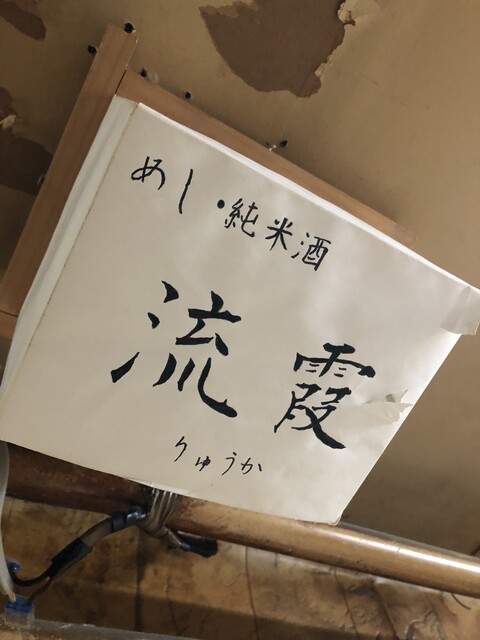 めし・純米酒
流霞
りゅうか